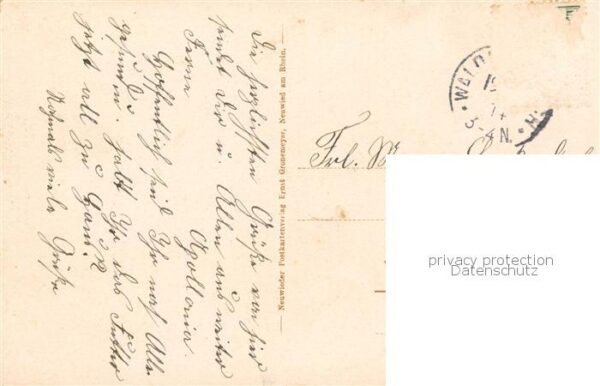 Die herzlichsten Grüße von hier
sendet Dir u. Allen aus weiter
Ferne
Apollonia
Hoffentlich seid Ihr noch Alle
gesund. Habt Ihr das Futter
jetzt all zu
Nochmals viele Grüße
Neuwieder Postkartenverlag Ernst Gronemeyer, Neuwied am Rhein.
Frl.
WALD
3-4 N.
privacy protection
Datenschutz